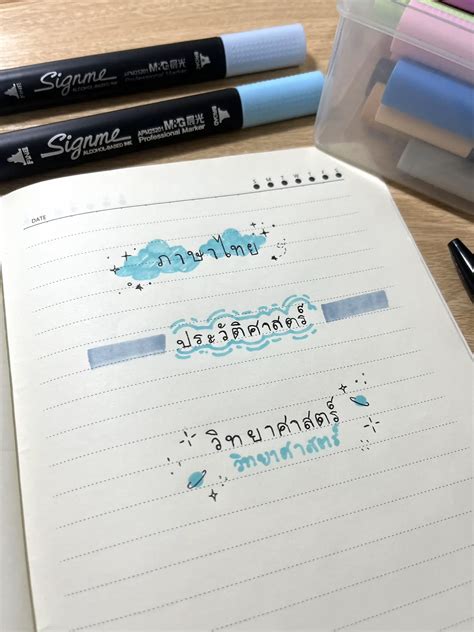 Signme APM25201 M&G晨光
ALCOHOL-BASED INK Professional Marker
Signme APM25201 M&G晨光
ALCOHOL-BASED INK Professional Marker
DATE S M T W T F S
ภาษาไทย
ประวัติศาสตร์
วิทยาศาสตร์
วิทยาศาสตร์